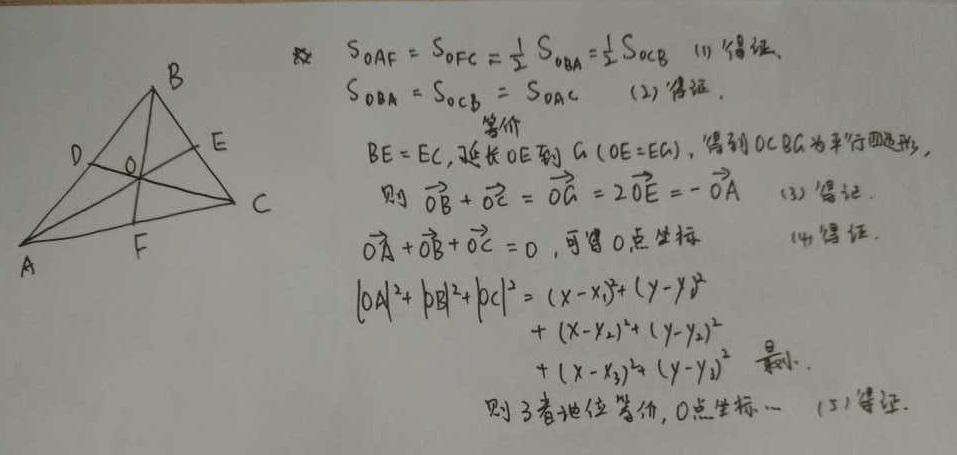 S_OAF = S_OFC = 1/2 S_OBA = 1/2 S_OCB (1) 得证、
S_OBA = S_OCB = S_OAC (2) 得证.
等价
BE = EC, 延长OE到G (OE=EG), 得到OCBG为平行四边形,
则 OB→ + OC→ = OG→ = 2OE→ = -OA→ (3) 得证.
OA→ + OB→ + OC→ = 0, 可得O点坐标 (4) 得证.
|OA|²+|OB|²+|OC|² = (x-x₁)²+(y-y₁)²
+ (x-x₂)²+(y-y₂)²
+ (x-x₃)²+(y-y₃)² 最小.
则3者地位等价, O点坐标… (5) 得证.
B
D
O
E
C
F
A